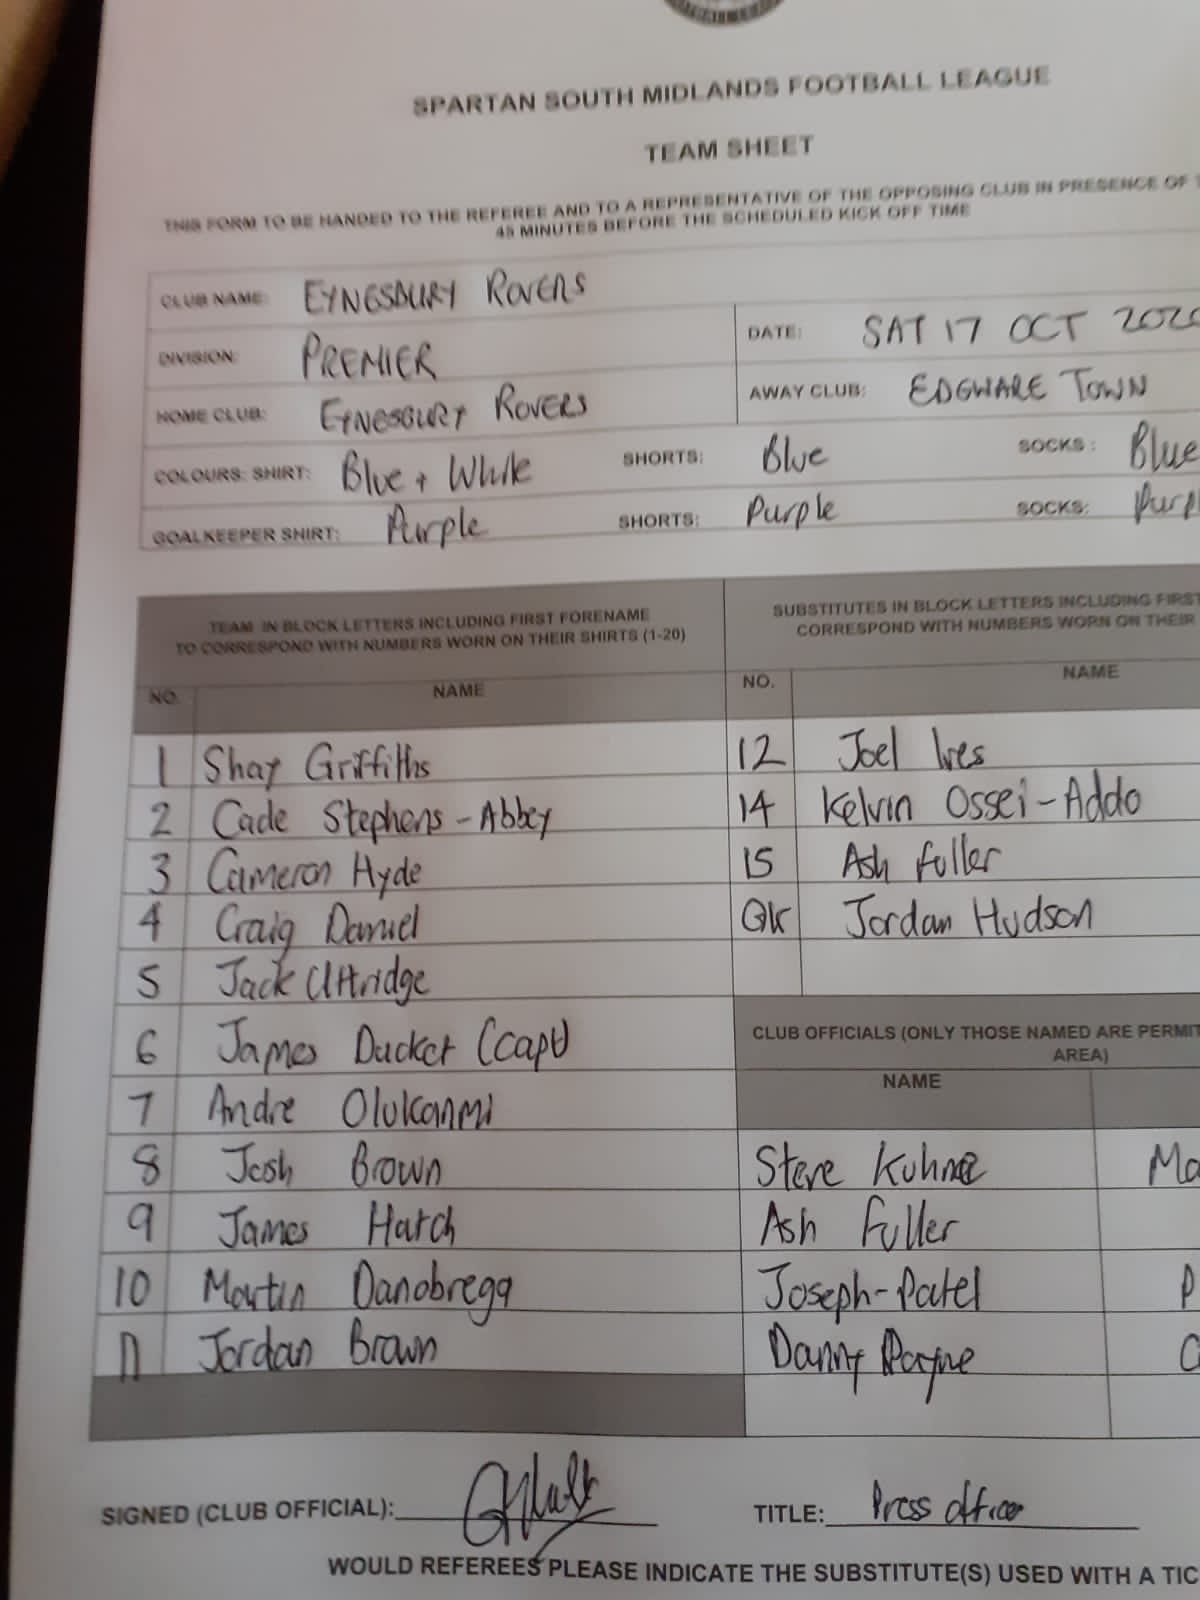 SPARTAN SOUTH MIDLANDS FOOTBALL LEAGUE
TEAM SHEET
THIS FORM TO BE HANDED TO THE REFEREE AND TO A REPRESENTATIVE OF THE OPPOSING CLUB IN PRESENCE OF
45 MINUTES BEFORE THE SCHEDULED KICK OFF TIME
CLUB NAME: EYNESBURY ROVERS
DIVISION: PREMIER DATE: SAT 17 OCT 2020
HOME CLUB: EYNESBURY ROVERS AWAY CLUB: EDGWARE TOWN
COLOURS: SHIRT: Blue + White SHORTS: Blue SOCKS: Blue
GOALKEEPER SHIRT: Purple SHORTS: Purple SOCKS: Purpl
TEAM IN BLOCK LETTERS INCLUDING FIRST FORENAME
TO CORRESPOND WITH NUMBERS WORN ON THEIR SHIRTS (1-20)
SUBSTITUTES IN BLOCK LETTERS INCLUDING FIRST
CORRESPOND WITH NUMBERS WORN ON THEIR
NO. NAME NO. NAME
1 Shay Griffiths
2 Cade Stephens-Abbey
3 Cameron Hyde
4 Craig Daniel
5 Jack Uttridge
6 James Ducket (capt)
7 Andre Olukanmi
8 Josh Brown
9 James Hatch
10 Martin Danobrega
11 Jordan Brown
12 Joel Ives
14 Kelvin Ossei-Addo
15 Ash Fuller
GK Jordan Hudson
CLUB OFFICIALS (ONLY THOSE NAMED ARE PERMIT
AREA)
NAME
Steve Kuhne Ma
Ash Fuller
Joseph-Patel P
Danny Payne C
SIGNED (CLUB OFFICIAL): TITLE: Press officer
WOULD REFEREES PLEASE INDICATE THE SUBSTITUTE(S) USED WITH A TIC